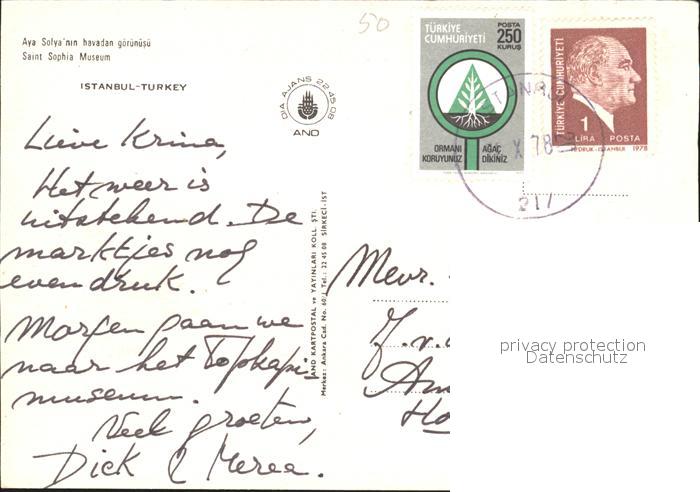 50
Aya Sofya'nın havadan görünüşü
Saint Sophia Museum
ISTANBUL-TURKEY
DIA AJANS 22 45 08
AND
TÜRKİYE CUMHURİYETİ
POSTA
250
KURUŞ
ORMANI KORUYUNUZ
AĞAÇ DİKİNİZ
TÜRKİYE CUMHURİYETİ
1
LİRA POSTA
1978
X 78
217
Lieve Krina,
Het weer is
uitstekend. De
marktjes nog
even druk.
Morgen gaan we
naar het Topkapi
museum.
Veel groeten,
Dick & Merea.
AND KARTPOSTAL ve YAYINLARI KOLL. ŞTİ.
Merkez: Ankara Cad. No. 60/1 Tel.: 22 45 08 SİRKECİ-İST
Mevr.
Z.v.
Am
Ho
privacy protection
Datenschutz